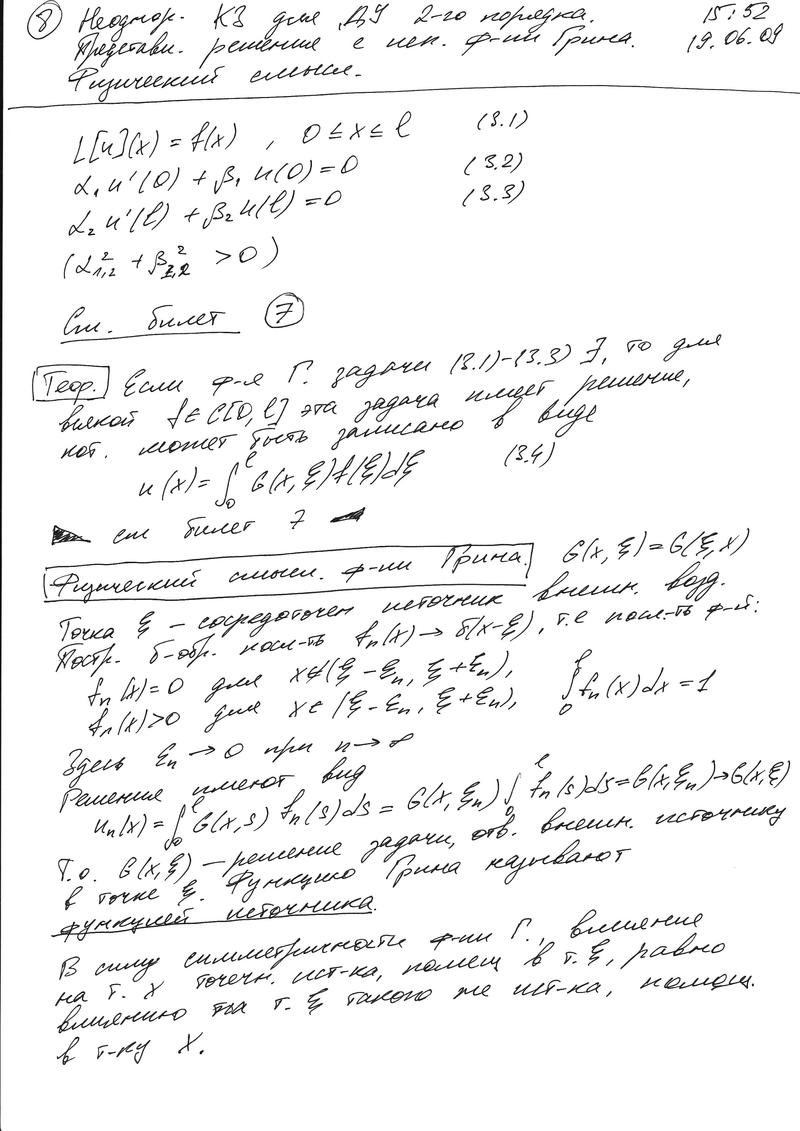 ⑧ Неоднор. КЗ для ДУ 2-го порядка. 15:52
Представл. решение с исп. ф-ии Грина. 19.06.09
Физический смысл.
L[u](x) = f(x) , 0 ≤ x ≤ l (3.1)
α₁u'(0) + β₁u(0) = 0 (3.2)
α₂u'(l) + β₂u(l) = 0 (3.3)
(α²₁,₂ + β²₁,₂ > 0)
См. билет ⑦
Теор. Если ф-я Г. задачи (3.1)-(3.3) ∃, то для
всякой f ∈ C[0, l] эта задача имеет решение,
кот. может быть записано в виде
u(x) = ∫₀ˡ G(x, ξ) f(ξ)dξ (3.4)
см билет 7
Физический смысл. ф-ии Грина. G(x, ξ) = G(ξ, x)
Точка ξ – сосредоточен источник внешн. возд.
Постр. δ-обр. посл-ть fₙ(x) → δ(x-ξ), т.е посл-ть ф-й:
fₙ(x) = 0 для x∉(ξ - εₙ, ξ + εₙ),
fₙ(x)>0 для x∈(ξ - εₙ, ξ + εₙ), ∫₀ˡ fₙ(x)dx = 1
Здесь εₙ → 0 при n → ∞
Решения имеют вид
uₙ(x) = ∫₀ˡ G(x, s) fₙ(s)ds = G(x, ξₙ) ∫₀ˡ fₙ(s)ds = G(x, ξₙ) → G(x, ξ)
Т.о. G(x, ξ) – решение задачи, отв. внешн. источнику
в точке ξ. Функцию Грина называют
функцией источника.
В силу симметричности ф-ии Г., влияние
на т. x точечн. ист-ка, помещ в т. ξ, равно
влиянию на т. ξ такого же ист-ка, помещ.
в т-ку x.